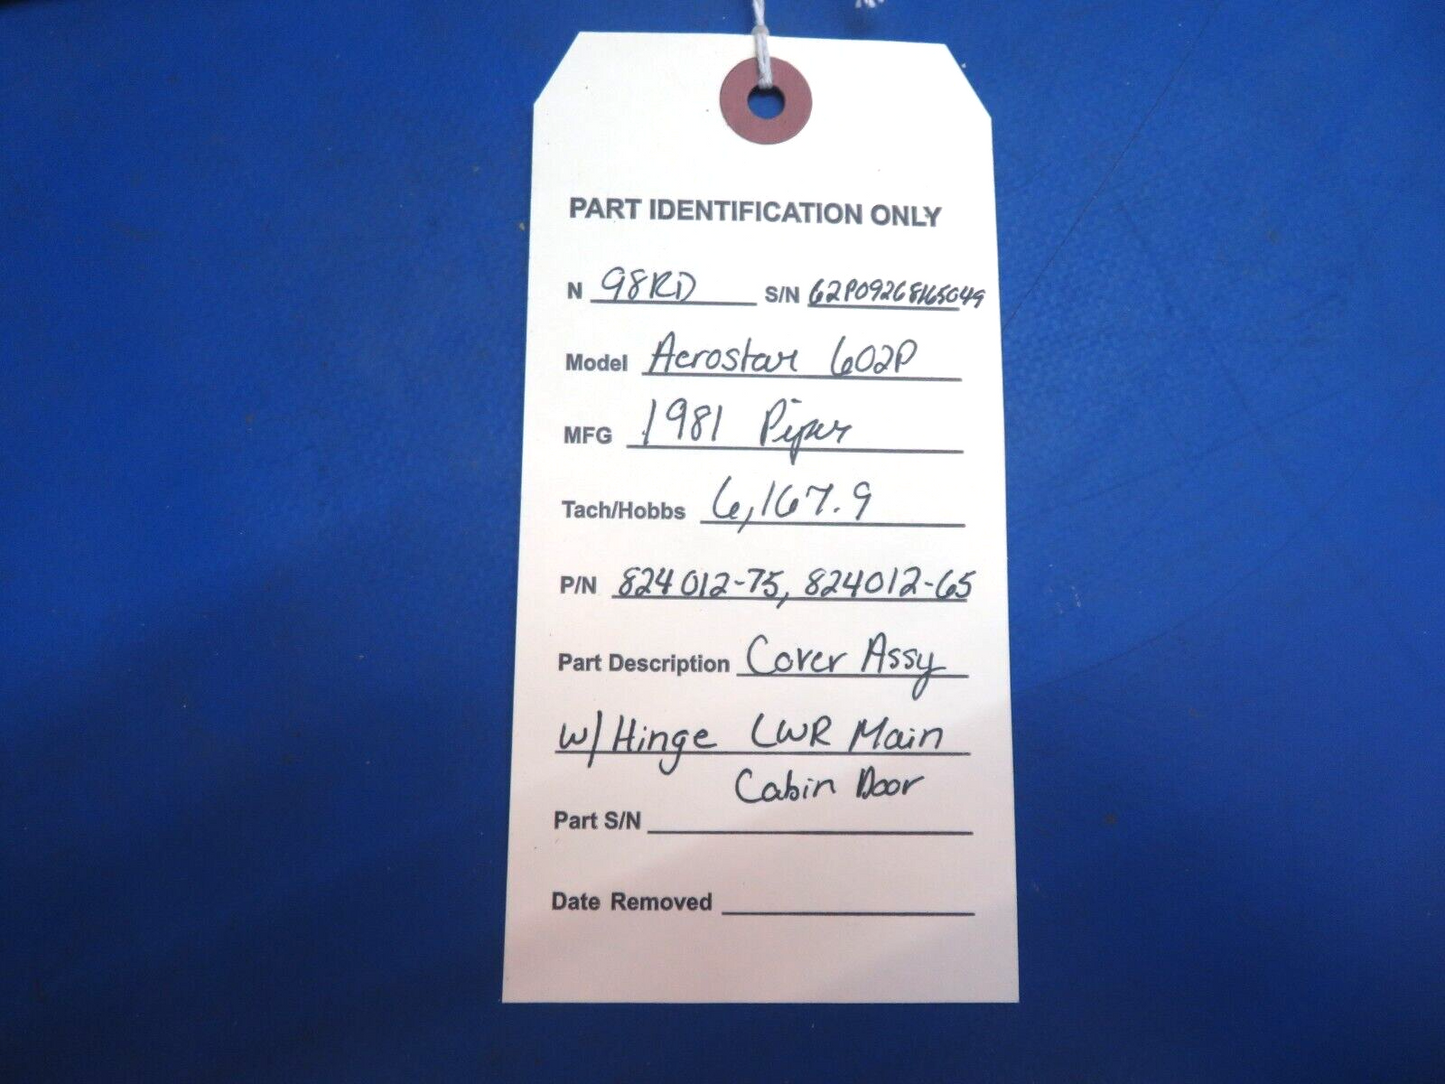 PART IDENTIFICATION ONLY
N 98RD S/N 62P09268165049
Model Aerostar 602P
MFG 1981 Piper
Tach/Hobbs 6,167.9
P/N 824012-75, 824012-65
Part Description Cover Assy
w/ Hinge LWR Main
Cabin Door
Part S/N
Date Removed